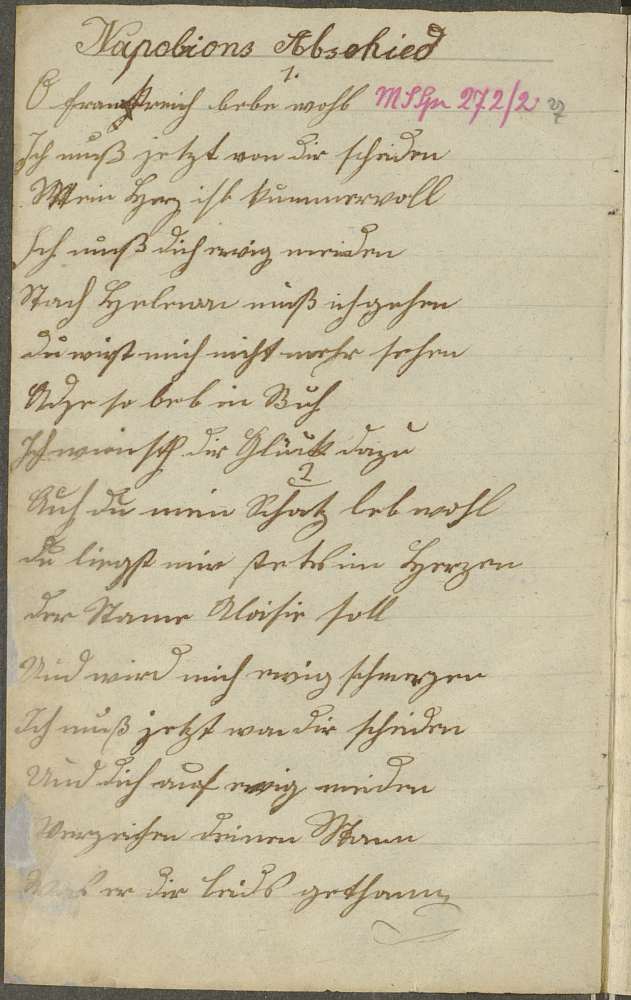 Napolions Abschied
1.
O Frankreich lebe wohl MS Gu 272/2 27
Ich muß jetzt von dir scheiden
Mein Herz ist kummervoll
Ich muß dich ewig meiden
Nach Helenna muß ich gehen
du wirst mich nicht mehr sehen
Adje so leb in Ruh
Ich wünsch dir Glück dazu
2
Auch du mein Schatz leb wohl
du liegst mir stets im Herzen
der Name Aloisie soll
Und wird mich ewig schmerzen
Ich muß jetzt von dir scheiden
Und dich auf ewig meiden
Verzeihen deinen Mann
Was er dir leids gethann